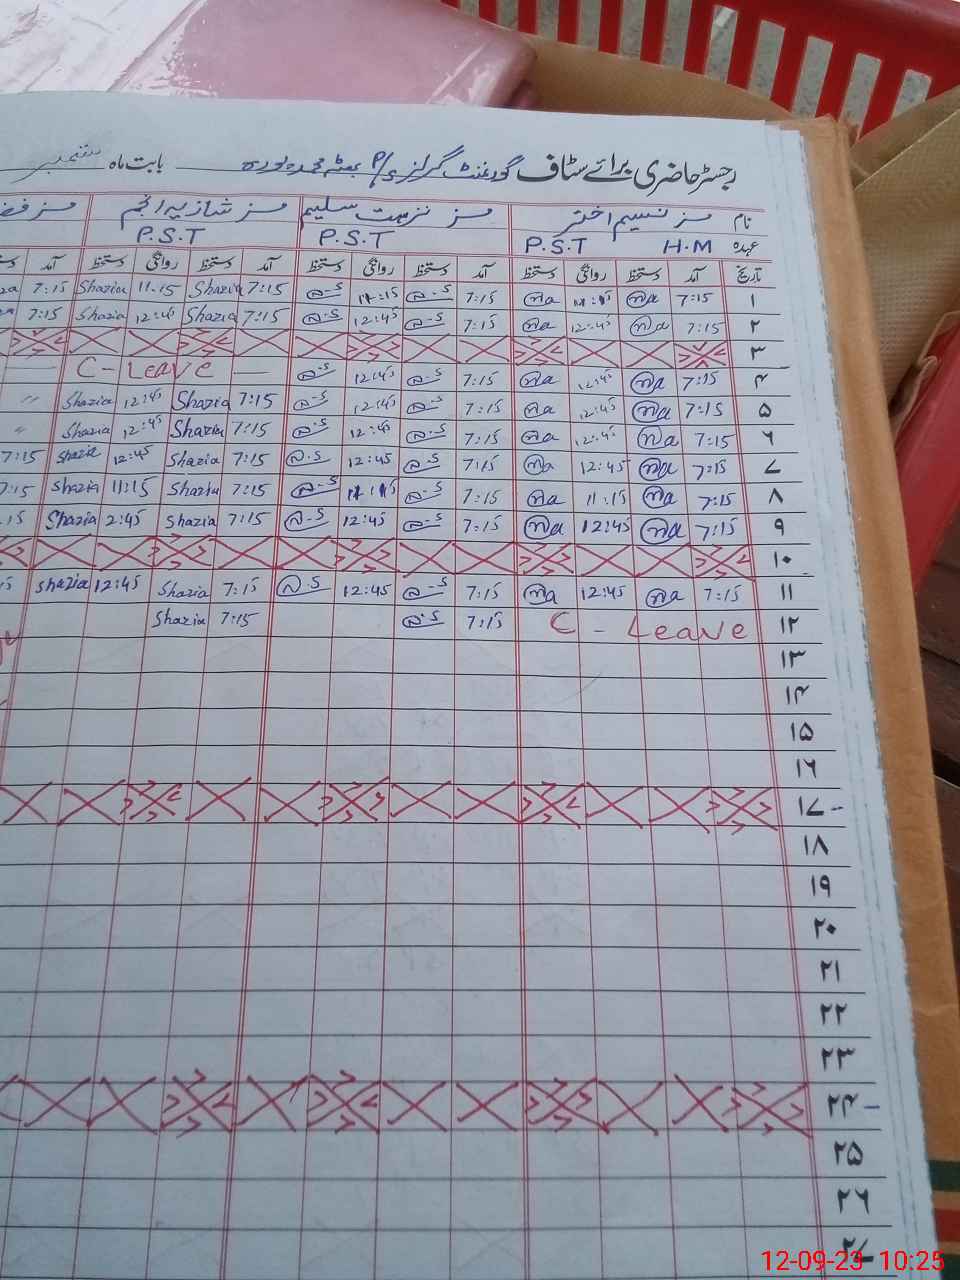 رجسٹر حاضری برائے سٹاف گورنمنٹ گرلز P/S بابت ماہ ستمبر
نام مسز نسیم اختر مسز نزہت سلیم مسز شازیہ انجم مسز
عہدہ H.M P.S.T P.S.T P.S.T
تاریخ آمد دستخط روانگی دستخط آمد دستخط روانگی دستخط آمد دستخط روانگی دستخط آمد
۱ 7:15 ma 11:15 ma 7:15 a.s 11:15 a.s 7:15 Shazia 11.15 Shazia 7:15
۲ 7:15 ma 12:45 ma 7:15 a.s 12:45 a.s 7:15 Shazia 12:45 Shazia 7:15
۳
۴ 7:15 ma 12:45 ma 7:15 a.s 12:45 a.s C - Leave
۵ 7:15 ma 12:45 ma 7:15 a.s 12:45 a.s 7:15 Shazia 12:45 Shazia "
۶ 7:15 ma 12:45 ma 7:15 a.s 12:45 a.s 7:15 Shazia 12:45 Shazia "
۷ 7:15 ma 12:45 ma 7:15 a.s 12:45 a.s 7:15 Shazia 12:45 Shazia 7:15
۸ 7:15 ma 11:15 ma 7:15 a.s 11:15 a.s 7:15 Shazia 11:15 Shazia 7:15
۹ 7:15 ma 12:45 ma 7:15 a.s 12:45 a.s 7:15 Shazia 2:45 Shazia :15
۱۰
۱۱ 7:15 ma 12:45 ma 7:15 a.s 12:45 a.s 7:15 Shazia 12:45 Shazia
۱۲ C - Leave 7:15 a.s 7:15 Shazia
۱۳
۱۴
۱۵
۱۶
۱۷
۱۸
۱۹
۲۰
۲۱
۲۲
۲۳
۲۴
۲۵
۲۶
۲۷
12-09-23 10:25